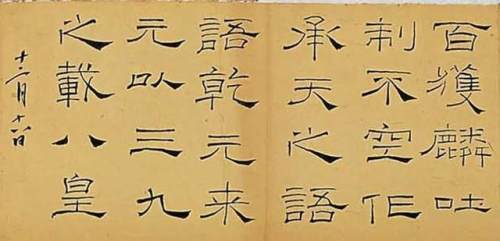 百獲麟吐
制不空作
承天之語
語乾元来
元以三九
之載八皇
十二月十日